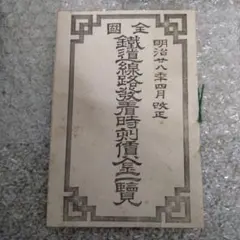 全國
明治廿八年四月改正
鐵道線路發着時刻賃金一覽